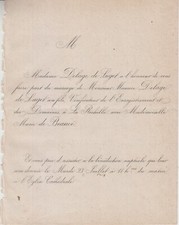 M
Madame Delage de Luget a l'honneur de vous
faire part du mariage de Monsieur Maurice Delage
de Luget son fils, Contrôleur de l'Enregistrement et
des Domaines à La Rochelle avec Mademoiselle
Marie de
Et vous prie d'assister à la bénédiction nuptiale qui leur
sera donnée le Mardi 27 Juillet à 11 h du matin
à l'Eglise Cathédrale